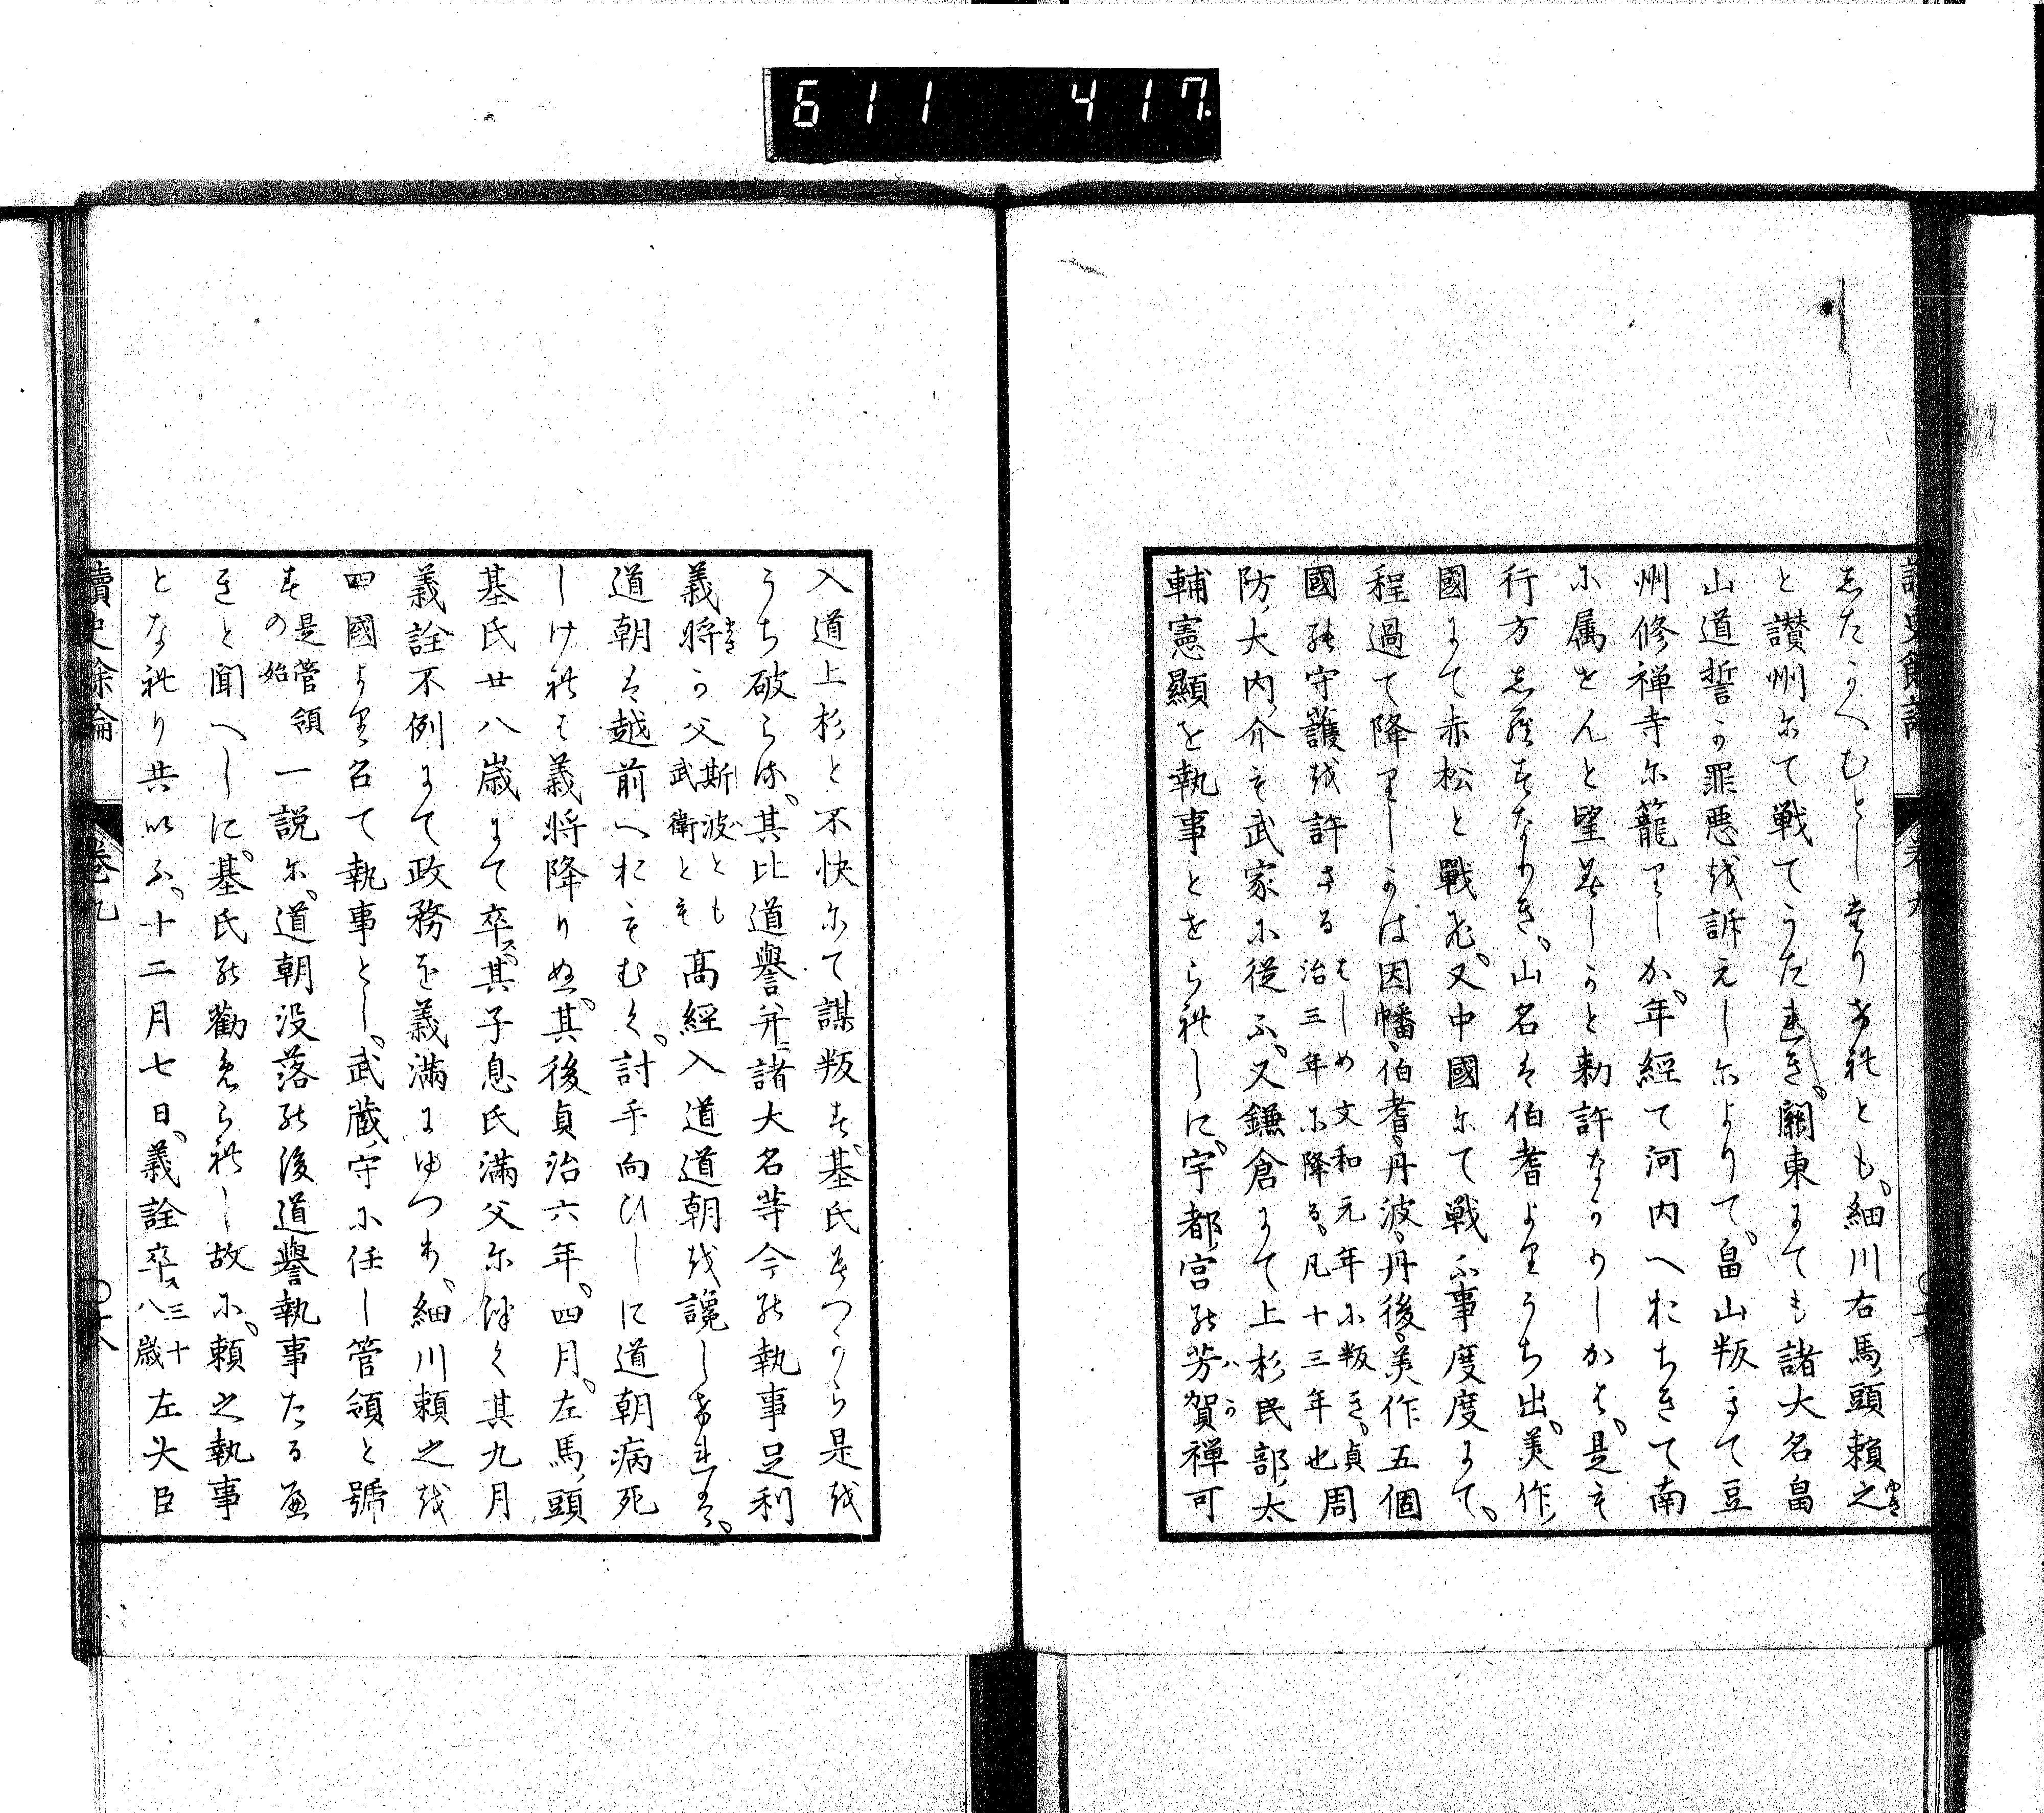 611 417
したかへむとしたりけれとも、細川右馬頭頼之
と讃州にて戦てうたれき、關東にても諸大名畠
山道誓か罪悪を訴えしによりて、畠山叛きて豆
州修禅寺に籠りしか、年經て河内へおちきて南
に属せんと望みしかと勅許なかりしかは、是も
行方しらすなりき、山名は伯耆よりうち出、美作
國にて赤松と戰ひ、又中國にて戦ふ事度度にて、
程過て降りしかは因幡、伯耆、丹波、丹後、美作五個
國の守護を許さる はしめ文和元年に叛き、貞治三年に降る、凡十三年也 周
防ノ大内ノ介も武家に従ふ、又鎌倉にて上杉民部ノ太
輔憲顯を執事とせられしに、宇都ノ宮の芳賀禅可
入道上杉と不快にて謀叛す、基氏みつから是を
うち破らる、其比道譽并ニ諸大名等今の執事足利
義将か父 斯波とも武衛とも 髙經入道道朝を讒しけれは、
道朝は越前へおもむく、討手向ひしに道朝病死
しけれは義将降りぬ、其後貞治六年、四月、左馬ノ頭
基氏廿八歳にて卒ス、其子息氏満父に継く其九月
義詮不例にて政務を義満にゆつり、細川頼之を
四國より召て執事とし、武蔵ノ守に任し管領と號
す 是管領の始 一説に、道朝没落の後道譽執事たるへ
きと聞へしに、基氏の勸められし故に、頼之執事
となれり共いふ、十二月七日、義詮卒ス 三十八歳 左大臣
讀史餘論 卷九